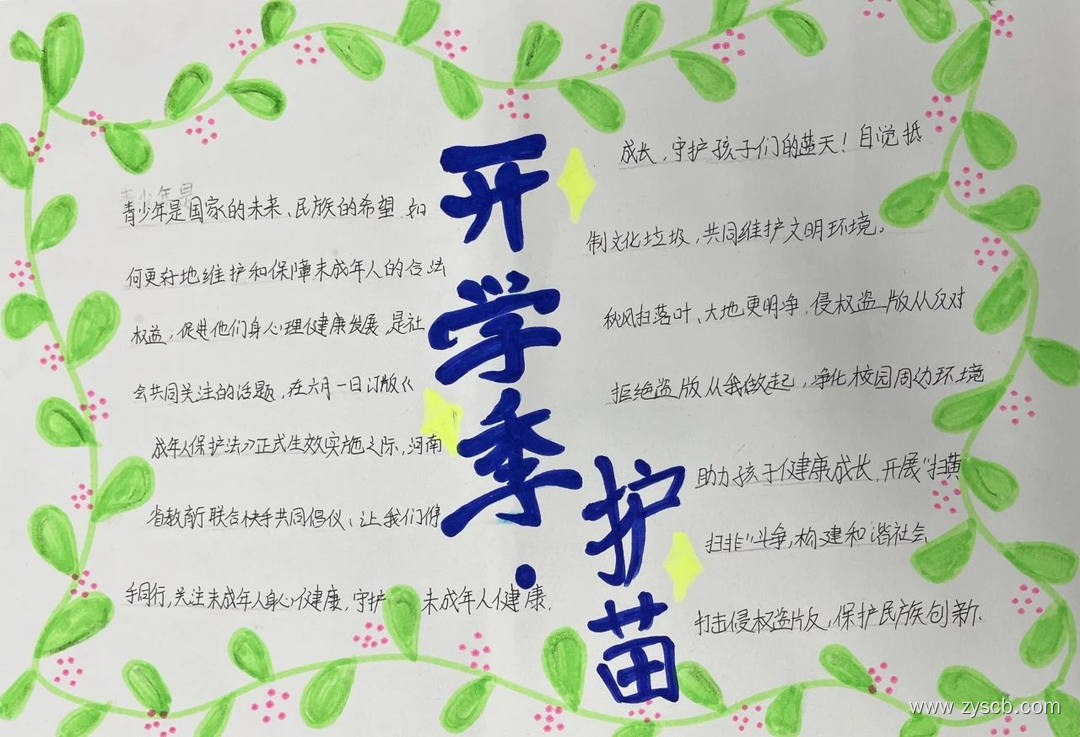 开学季·
护苗
青少年是
青少年是国家的未来、民族的希望、如
何更好地维护和保障未成年人的合法
权益，促进他们身心理健康发展，是社
会共同关注的话题，在六月一日订版《
成年人保护法》正式生效实施之际，河南
省教育厅联合快手共同倡仪，让我们携
手同行，关注未成年人身心健康，守护 未成年人健康，
成长，守护孩子们的蓝天！自觉抵
制文化垃圾，共同维护文明环境。
秋风扫落叶、大地更明净，侵权盗版从反对
拒绝盗版从我做起，净化校园周边环境
助力孩子健康成长，开展“扫黄
扫非”斗争，构建和谐社会
打击侵权盗版，保护民族创新、
www.zyscb.com